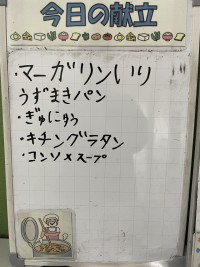 今日の献立
・マーガリンいり
うずまきパン
・ぎゅにゅう
・キチングラタン
・コンソメスープ